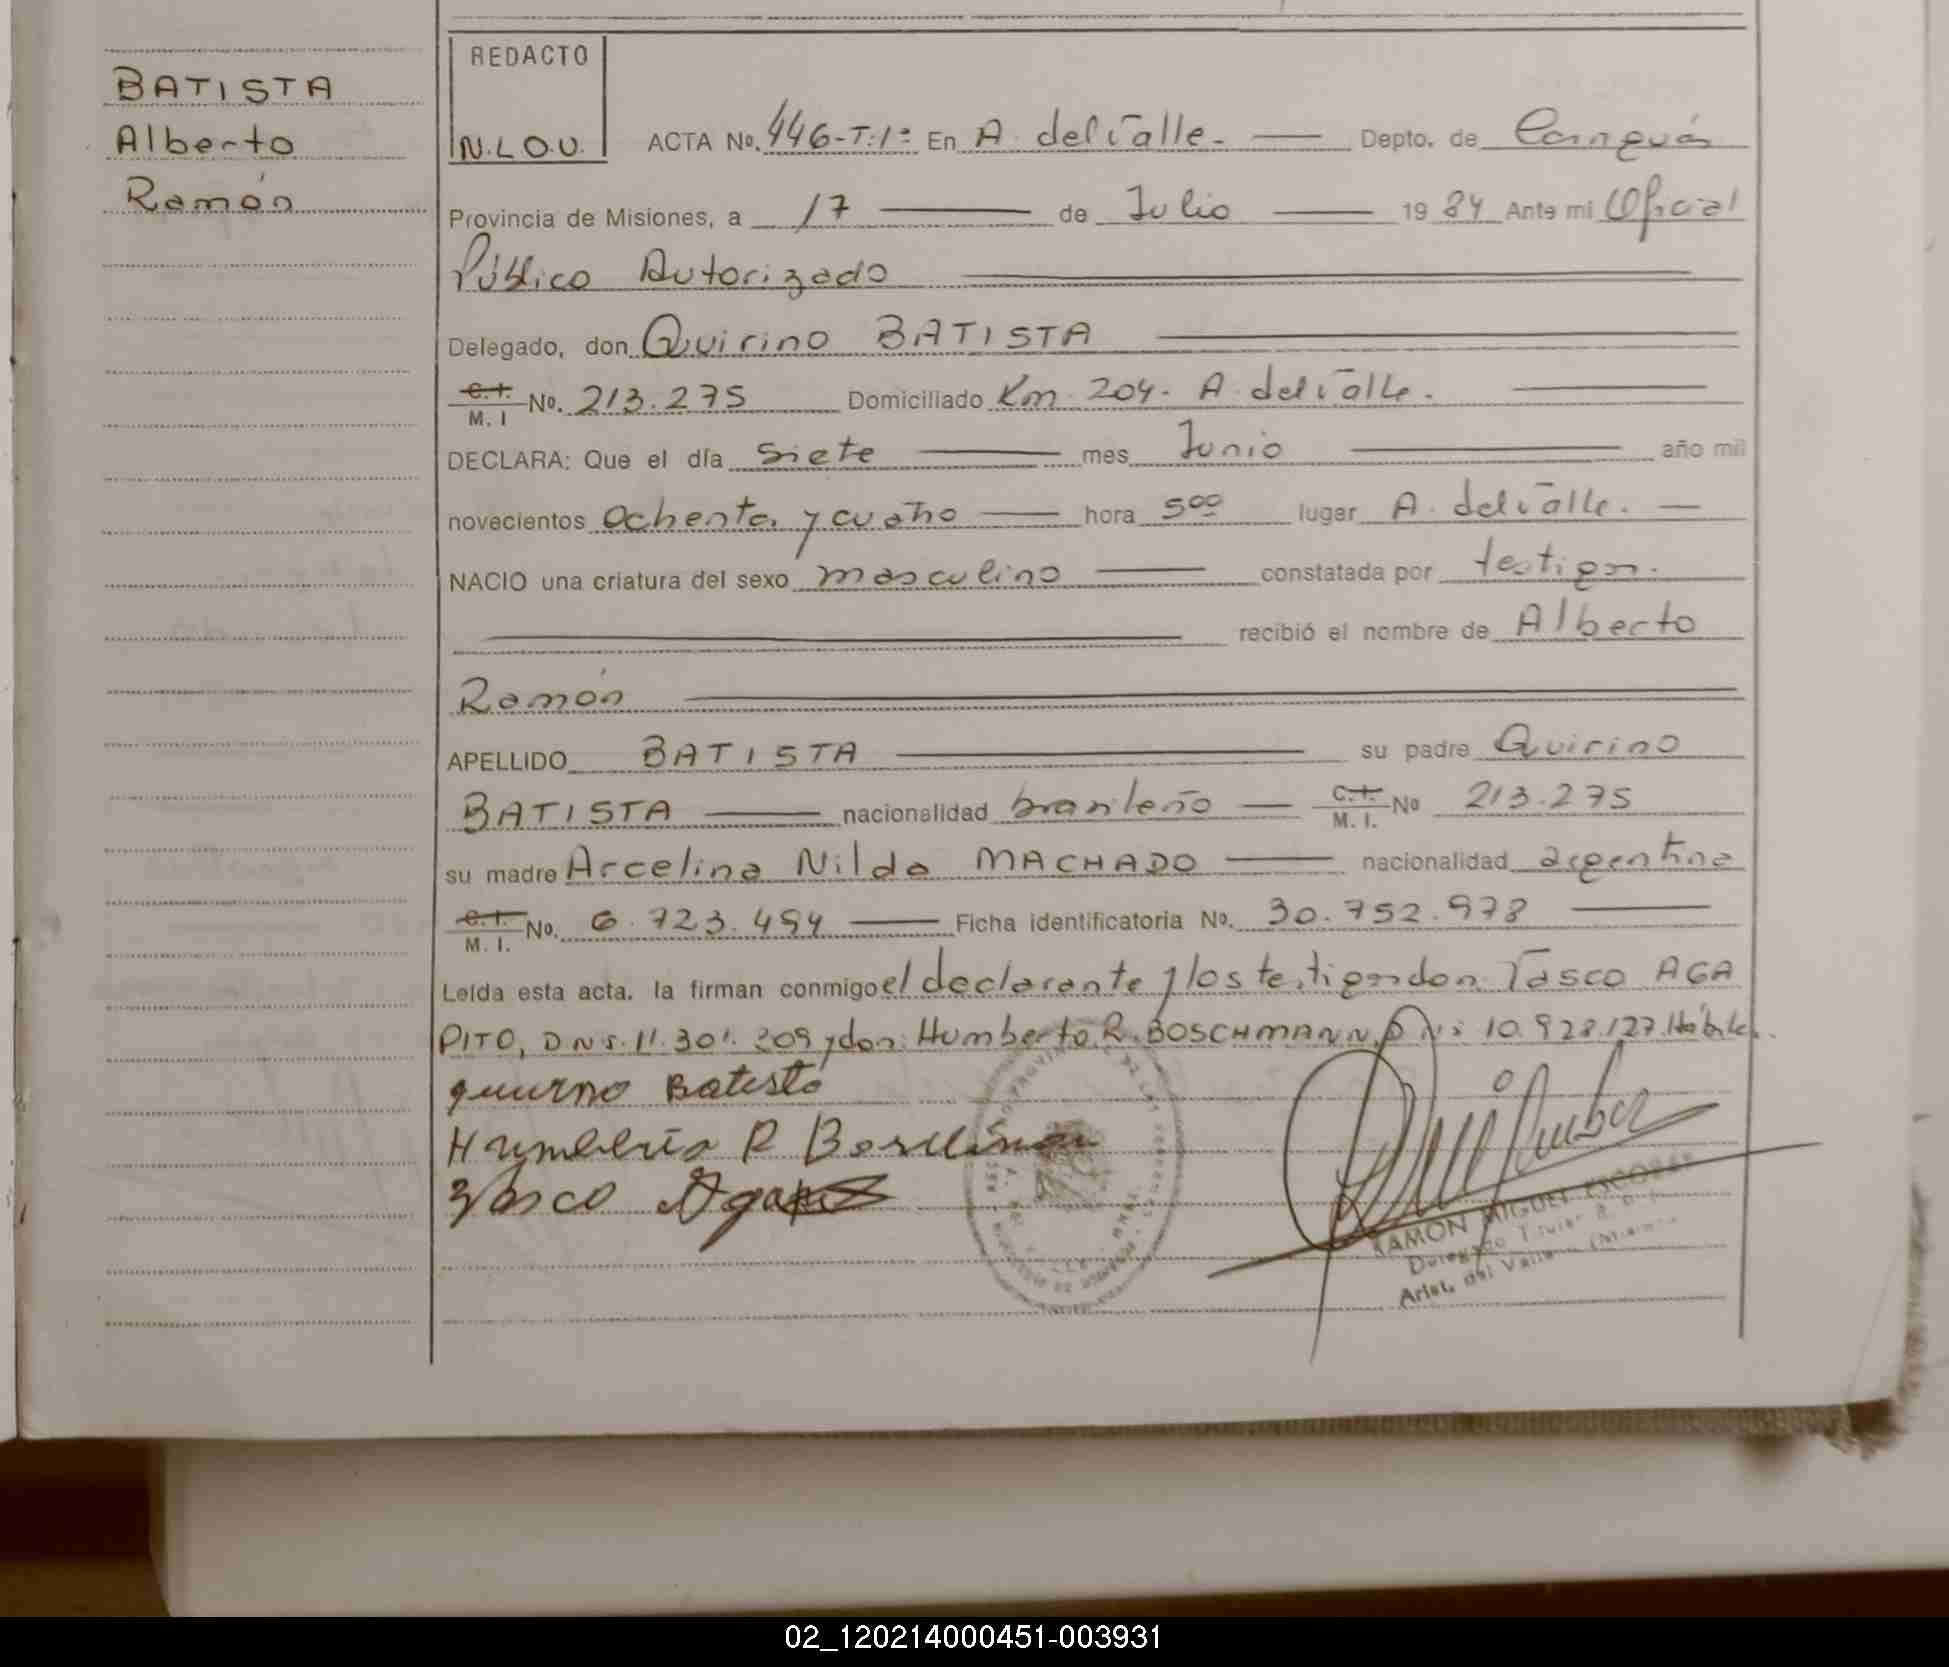 BATISTA
Alberto
Ramón
REDACTO
N.L.O.U.
ACTA No. 446-T:1º En A. del Valle.- Depto. de Cainguás
Provincia de Misiones, a 17 de Julio 1984 Ante mi Oficial
Público Autorizado
Delegado, don Quirino BATISTA
C.I. M. I No. 213.275 Domiciliado Km. 204- A. del Valle.
DECLARA: Que el día siete mes Junio año mil
novecientos ochenta y cuatro hora 5ºº lugar A. del Valle.
NACIO una criatura del sexo masculino constatada por testigos.
recibió el nombre de Alberto
Ramón
APELLIDO BATISTA su padre Quirino
BATISTA nacionalidad brasileño C.I. M. I. No 213.275
su madre Arcelina Nilda MACHADO nacionalidad argentina
C.I. M. I. No. 6.723.494 Ficha identificatoria No. 30.752.978
Leída esta acta. la firman conmigo el declarante y los testigos don Vasco AGA
PITO, DNI. 11.301.209 y don: Humberto R. BOSCHMANN, DNI: 10.928.127. Hábiles.
quirno Batista
Humberto R Boschman
Vasco
RAMON MIGUEL ESCOBAR
Delegado Titular
Arist. del Valle
02_120214000451-003931